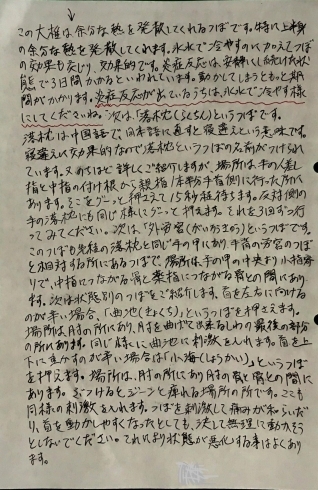 この大椎は余分な熱を発散してくれるつぼです。特に上半身
の余分な熱を発散してくれます。氷水で冷やすのに加えてつぼ
の効果もたし効果的です。炎症反応は安静にした状
態で3日間かかるといわれています。動かしてしまうともっと期
間がかかります。炎症反応が出ているうちは、氷水で冷やす様
にしてくださいね。次は「落枕(らくちん)」というつぼです。
落枕は中国語で、日本語に直すと寝違えという意味です。
寝違えに効果的なので落枕というつぼの名前がつけられ
ています。詳しくご紹介しますが、場所は手の人差し
指と中指の付け根から親指1本半分手首側に行った所に
あります。そこをグーッと押さえて15秒程待ちます。反対側の
手の落枕にも同じ様にグーッと押えます。それを3回ずつ行
ってみてください。次は、「外労宮(がいろうきゅう)」というつぼです。
このつぼも先程の落枕と同じ手の甲にあり、手掌の労宮のつぼ
と相対する所にあるつぼで、場所は、手の甲の中央より小指寄
りで、中指につながる骨と薬指につながる骨との間にあり
ます。次は状態別のつぼをご紹介します。首を左右に向ける
のが辛い場合、「曲池(きょくち)」というつぼを押さえます。
場所は、肘の所にあり、肘を曲げて出来るしわの最後の部分
の所にあります。同じ様に曲池に刺激を入れます。首を上
下に動かすのが辛い場合は「小海(しょうかい)」というつぼ
を押えます。場所は、肘の所にあり肘の骨と骨との間に
あります。ぶつけるとジーンと痺れる場所の所です。ここも
同様の刺激を入れます。つぼを刺激して痛みが和らいだ
り、首を動かしやすくなったとしても、決して無理に動かそう
としないでください。それにより状態が悪化する事はよくあり
ます。